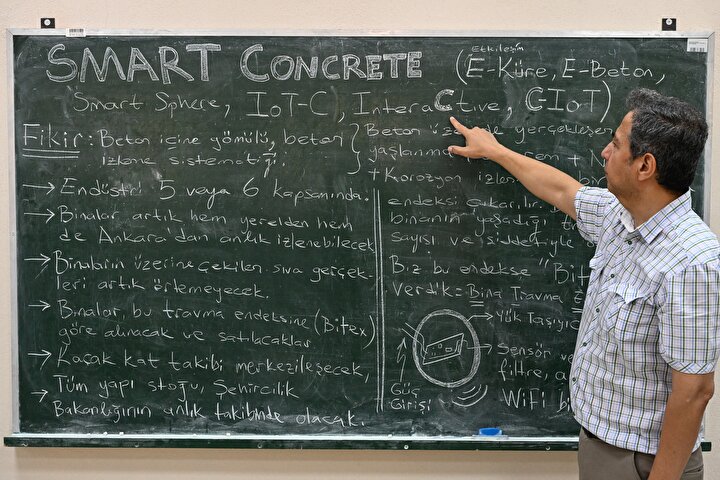 SMART CONCRETE
Etkileşim
(E-Küre, E-Beton,
Smart Sphere, IoT-C), InteraCtive, C-IoT)
Fikir: Beton içine gömülü, beton
izleme sistematiği.
→ Endüstri 5 veya 6 kapsamında.
→ Binalar artık hem yerelden hem
de Ankara'dan anlık izlenebilecek
→ Binaların üzerine çekilen sıva gerçek-
leri artık örtemeyecek.
→ Binalar, bu travma endeksine (Bitex)
göre alınacak ve satılacaklar
→ Kaçak kat takibi merkezileşecek,
→ Tüm yapı stoğu, Şehircilik
Bakanlığının anlık takibinde olacak.
Beton üz de gerçekleşen
yaşlanma + N
+ Korozyon
endeksi çıkarılır.
binanın yaşadığı
sayısı ve şiddetiyle
Biz bu endekse "Bit
verdik = Bina Travma
→ Yük Taşıyıc
→ Sensör ve
filtre,
Güç
Girişi
WiFi bi